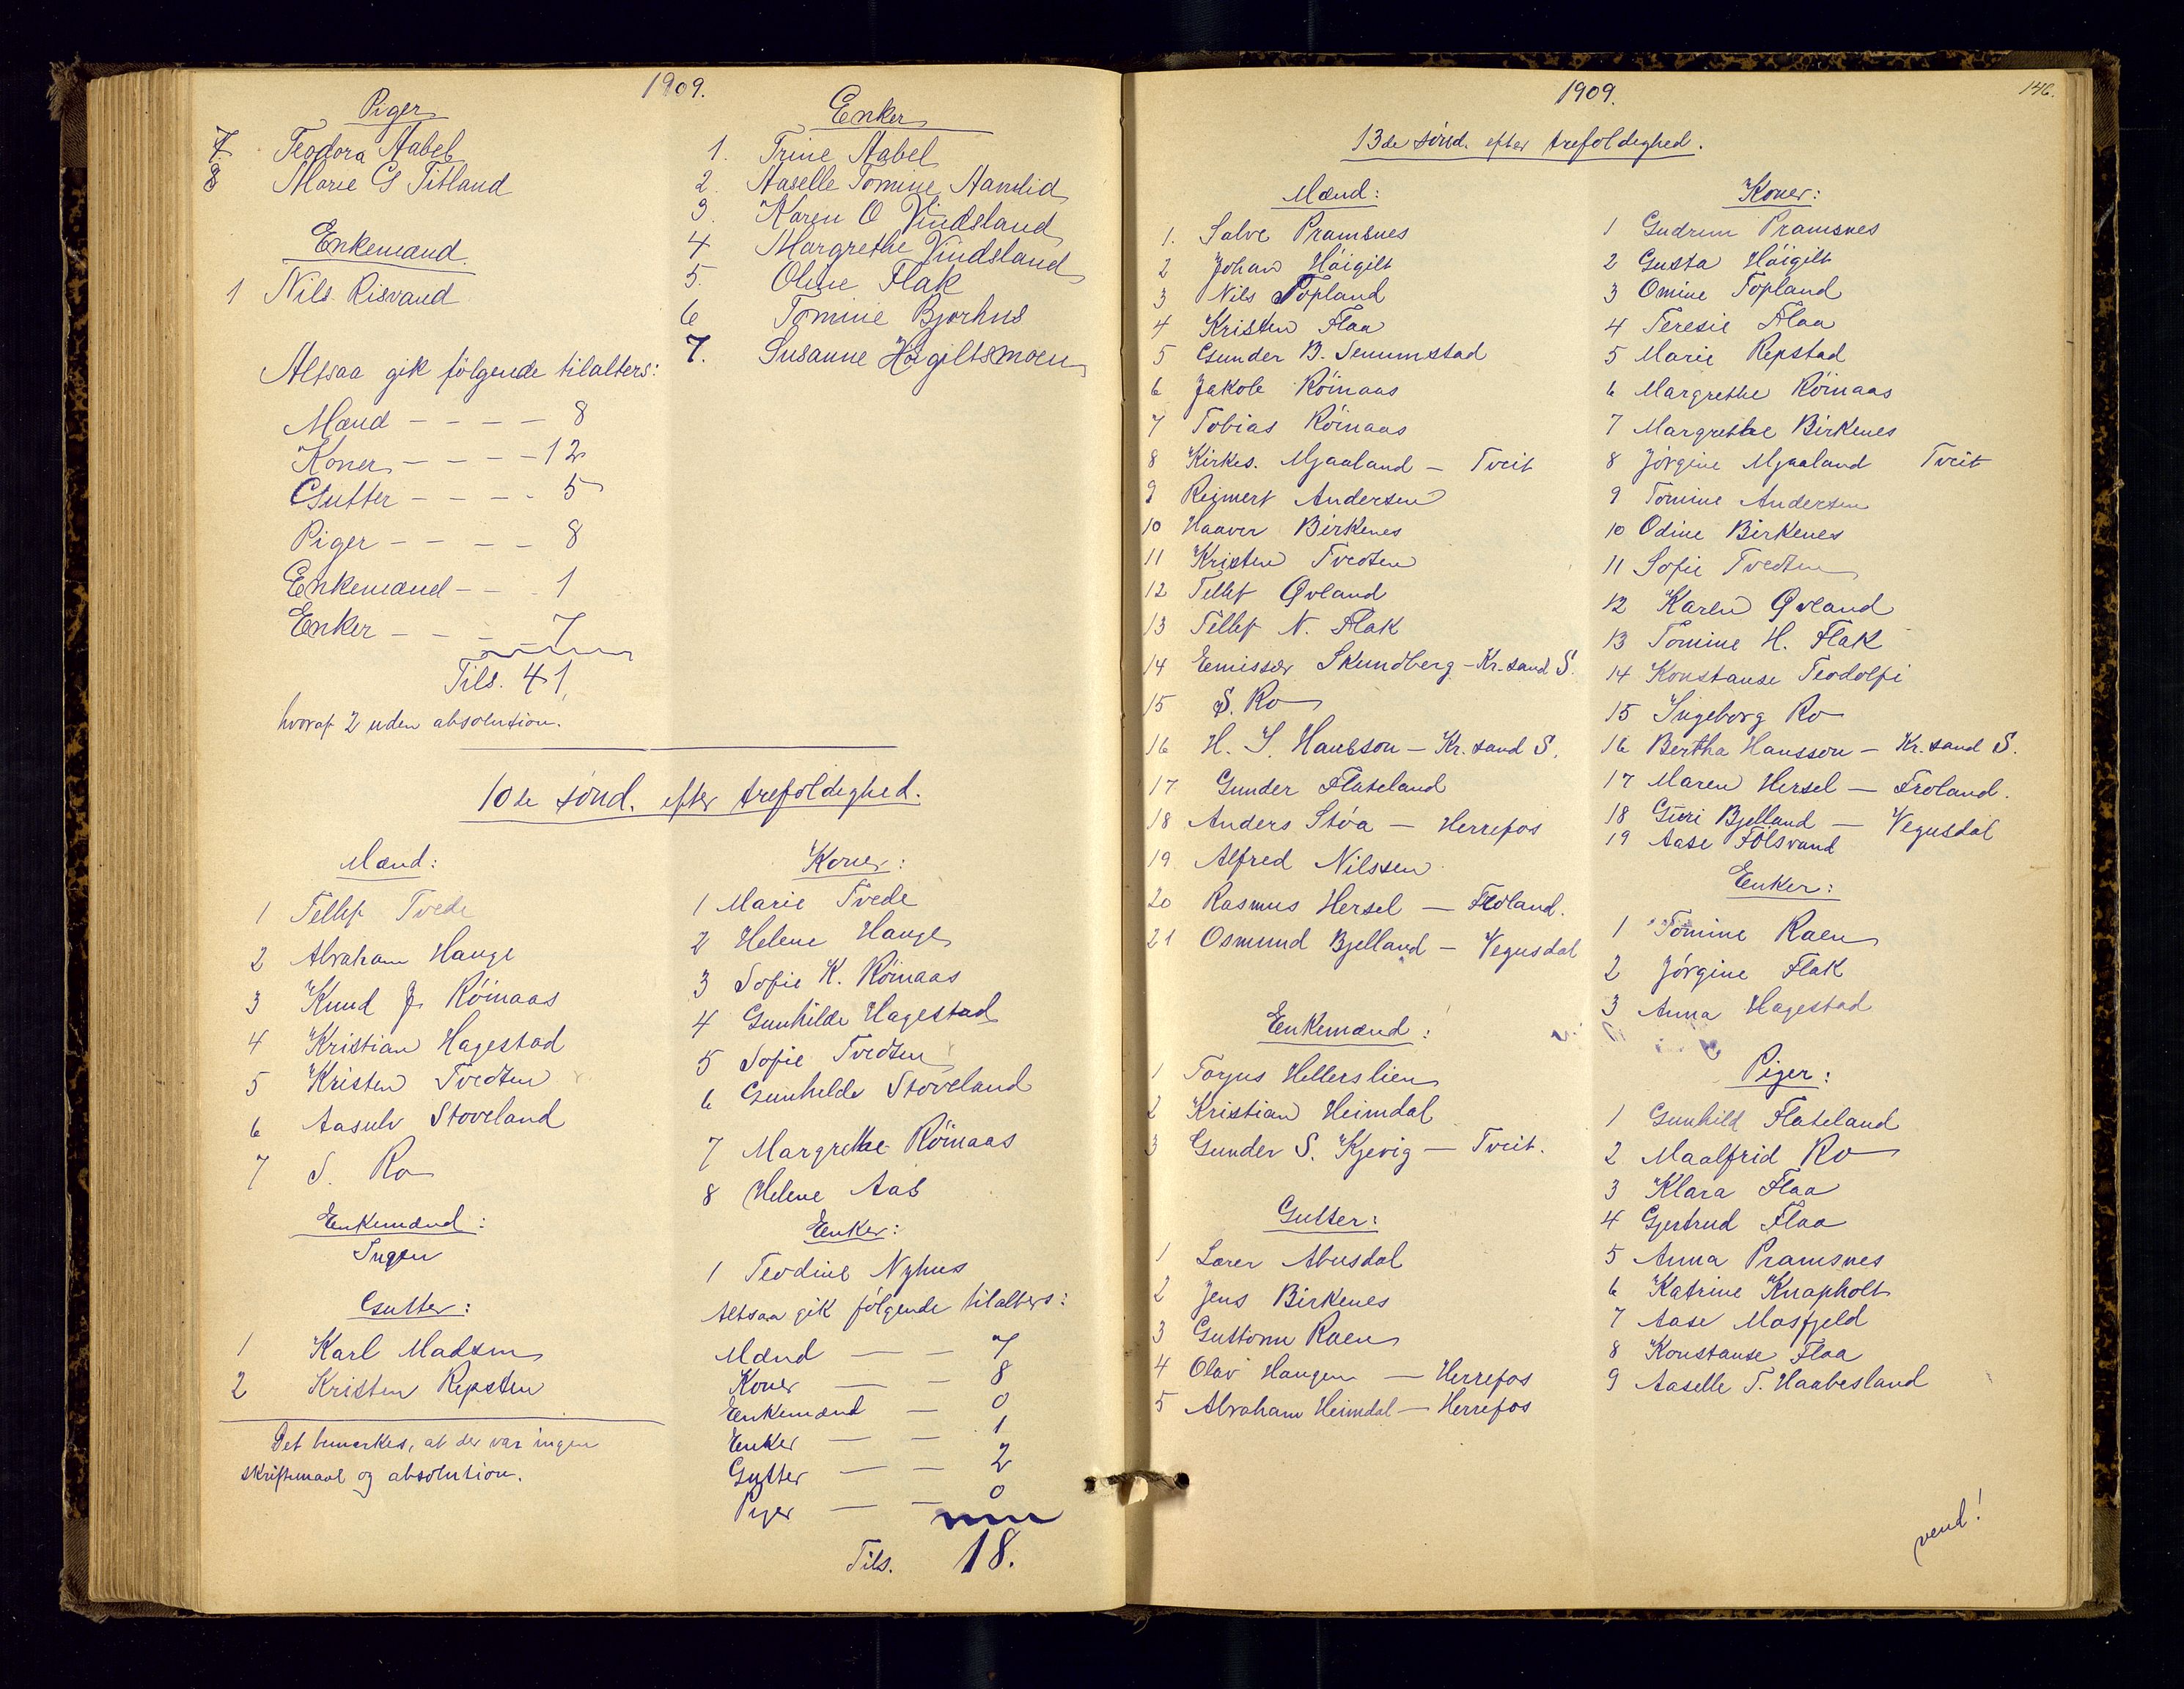 1909.
Piger
7. Teodora Aabel
8 Marie G Titland
Enkemænd
1 Nils Risvand
Altsaa gik følgende tilalters:
Mænd - - - - 8
Koner - - - - 12
Gutter - - - - 5
Piger - - - - 8
Enkemænd - - - 1
Enker - - - - 7
Tils. 41
hvoraf 2 uden absolution.
Enker
1. Trine Aabel
2. Aaselle Tomine Aamlid
3. Karen O Vindsland
4 Margrethe Vindsland
5. Oline Flak
6 Tomine Bjorhus
7. Susanne Høigiltsmoen
10de sønd. efter trefoldighed.
Mænd:
1 Tellef Tvede
2 Abraham Hauge
3 Knud J. Röinaas
4 Kristian Hagestad
5 Kristen Tvedten
6 Aasulv Stoveland
7 S. Ro
Enkemænd:
Ingen
Gutter:
1 Karl Madsen
2 Kristen Repsten
Det bemærkes, at der var ingen
skriftemaal og absolution.
Koner:
1 Marie Tvede
2 Helene Hauge
3 Sofie K. Röinaas
4 Gunhilde Hagestad
5 Sofie Tvedten
6 Gunhilde Stoveland
7 Margrethe Röinaas
8 Helene Aas
Enker:
1 Teodine Nyhus
Altsaa gik følgende tilalters:
Mænd — — 7
Koner — — 8
Enkemænd — 0
Enker — — 1
Gutter — — 2
Piger — — 0
Tils. 18.
1909.
146.
13de sönd. efter trefoldighed.
Mænd:
1. Salve Pramsnes
2 Johan Höigilt
3 Nils Topland
4 Kristen Flaa
5 Gunder B. Senumstad
6 Jakob Röinaas
7 Tobias Röinaas
8 Kirkes. Mjaaland — Tveit
9 Reimert Andersen
10 Haaver Birkenes
11 Kristen Tvedten
12 Tellef Øvland
13 Tellef N. Flak
14 Emissær Skundberg - Kr.sand S.
15 S. Ro
16 H. S. Hansson — Kr.sand S.
17 Gunder Flateland
18 Anders Stöa — Herrefos
19 Alfred Nilssen
20 Rasmus Hersel — Froland.
21 Osmund Bjelland — Vegusdal
Enkemænd:
1 Torjus Hellerslien
2 Kristian Heimdal
3 Gunder S. Kjevig — Tveit.
Gutter:
1 Lærer Abusdal
2 Jens Birkenes
3 Guttorm Raen
4 Olav Haugen — Herrefos
5 Abraham Heimdal — Herrefos
Koner:
1 Gudrun Pramsnes
2 Gusta Höigilt
3 Omine Topland
4 Teresie Flaa
5 Marie Repstad
6 Margrethe Röinaas
7 Margrethe Birkenes
8 Jörgine Mjaaland Tveit
9 Tomine Andersen
10 Odine Birkenes
11 Sofie Tvedten
12 Karen Øvland
13 Tomine H. Flak
14 Konstanse Teodolfi
15 Ingeborg Ro
16 Bertha Hansson — Kr.sand S.
17 Maren Hersel — Froland.
18 Guri Bjelland — Vegusdal
19 Aase Fölsvand
Enker:
1 Tomine Raen
2 Jörgine Flak
3 Anna Hagestad
Piger:
1 Gunhild Flateland
2 Maalfrid Ro
3 Klara Flaa
4 Gjertrud Flaa
5 Anna Pramsnes
6 Katrine Knapholt
7 Aase Mosfjeld
8 Konstanse Flaa
9 Aaselle T. Haabesland
vend!